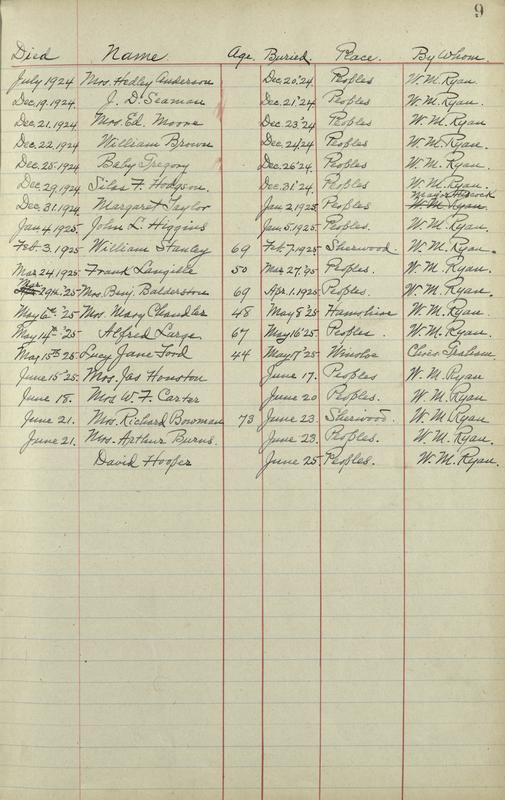 9
Died Name Age Buried. Place. By Whom.
July 1924 Mrs. Hedley Anderson Dec. 20 '24 Peoples W. M. Ryan
Dec. 19. 1924. J. D. Seaman Dec. 21 '24 Peoples W. M. Ryan.
Dec. 21. 1924 Mrs. Ed. Moore Dec. 23 '24 Peoples W. M. Ryan
Dec. 22. 1924 William Brown Dec. 24 24 Peoples W. M. Ryan.
Dec. 25. 1924 Baby Gregory Dec. 26 '24 Peoples W. M. Ryan.
Dec. 29 1924 Silas F. Hodgson. Dec. 31 '24. Peoples W. M. Ryan.
Dec. 31. 1924 Margaret Taylor Jan 2. 1925 Peoples W. M. Ryan
Jan 4. 1925 John L. Higgins Jan. 5. 1925 Peoples. W. M. Ryan.
Feb 3. 1925 William Stanley 69 Feb 7. 1925 Sherwood. W. M. Ryan.
Mar 24 1925. Frank Langille 50 Mar. 27. '25 Peoples. W. M. Ryan.
Mar. 29th. '25 Mrs. Benj. Balderston 69 Apr. 1. 1925 Peoples. W. M. Ryan.
May 6th '25 Mrs Mary Chandler 48 May 8 '25 Hamshire W. M. Ryan.
May 14th '25 Alfred Large 67 May 16 '25 Peoples W. M. Ryan.
May 15th 25 Lucy Jane Ford 44 May 17 '25 Winsloe Graham.
June 15 '25. Mrs. Jas Houston June 17. Peoples W. M. Ryan
June 18. Mrs W. F. Carter June 20 Peoples. W. M. Ryan.
June 21. Mrs. Richard Bowman 73 June 23 Sherwood. W. M. Ryan
June 21. Mrs. Arthur Burns. June 23. Peoples. W. M. Ryan.
David Hooper June 25 Peoples. W. M. Ryan.